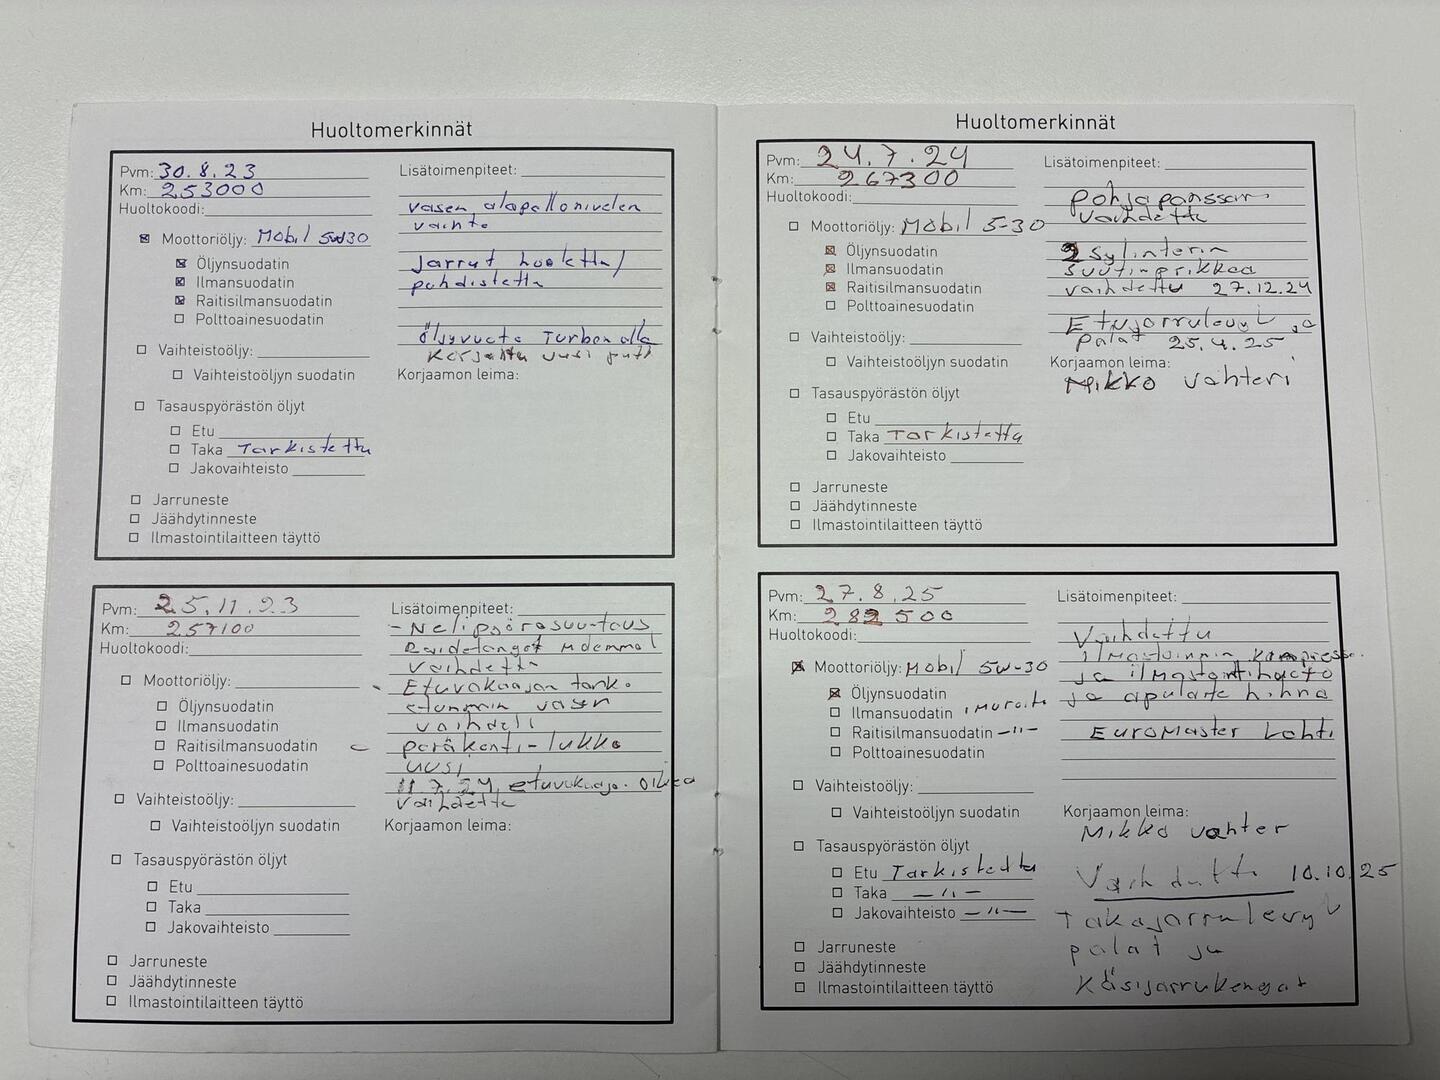 Huoltomerkinnät
Pvm: 30.8.23
Km: 253000
Huoltokoodi:
Moottoriöljy: Mobil 5W30
Öljynsuodatin
Ilmansuodatin
Raitisilmansuodatin
Polttoainesuodatin
Vaihteistoöljy:
Vaihteistoöljyn suodatin
Tasauspyörästön öljyt
Etu
Taka Tarkistettu
Jakovaihteisto
Jarruneste
Jäähdytinneste
Ilmastointilaitteen täyttö
Lisätoimenpiteet:
vasen alapallonivelen
vaihto
Jarrut huollettu/
puhdistettu
Öljyvuoto Turbon alla
Korjattu uusi putki
Korjaamon leima:
Pvm: 25.11.23
Km: 257100
Huoltokoodi:
Moottoriöljy:
Öljynsuodatin
Ilmansuodatin
Raitisilmansuodatin
Polttoainesuodatin
Vaihteistoöljy:
Vaihteistoöljyn suodatin
Tasauspyörästön öljyt
Etu
Taka
Jakovaihteisto
Jarruneste
Jäähdytinneste
Ilmastointilaitteen täyttö
Lisätoimenpiteet:
- Nelipyöräsuuntaus
Raidetangot molemmat
vaihdettu
- Etuvakaajan tank.
vasen
- peräkontti-lukko
uusi
11.7.24 etuvakaaja. Oikea
vaihdettu
Korjaamon leima:
Huoltomerkinnät
Pvm: 24.7.24
Km: 267300
Huoltokoodi:
Moottoriöljy: Mobil 5-30
Öljynsuodatin
Ilmansuodatin
Raitisilmansuodatin
Polttoainesuodatin
Vaihteistoöljy:
Vaihteistoöljyn suodatin
Tasauspyörästön öljyt
Etu
Taka Tarkistettu
Jakovaihteisto
Jarruneste
Jäähdytinneste
Ilmastointilaitteen täyttö
Lisätoimenpiteet:
pohjapanssari
vaihdettu
2 Sylinterin
suutinprikkaa
vaihdettu 27.12.24
Etujarrulevyt ja
palat 25.4.25
Korjaamon leima:
Mikko vahteri
Pvm: 27.8.25
Km: 282500
Huoltokoodi:
Moottoriöljy: Mobil 5W-30
Öljynsuodatin
Ilmansuodatin imuroitu
Raitisilmansuodatin -"-
Polttoainesuodatin
Vaihteistoöljy:
Vaihteistoöljyn suodatin
Tasauspyörästön öljyt
Etu Tarkistettu
Taka -"-
Jakovaihteisto -"-
Jarruneste
Jäähdytinneste
Ilmastointilaitteen täyttö
Lisätoimenpiteet:
Vaihdettu
ilmastoinnin kompresso.
ja ilmastointihuolto
ja apulaite hihna
EuroMaster Lahti
Korjaamon leima:
Mikko vahter
Vaihdettu 10.10.25
Takajarrulevyt
palat ja
Käsijarrukengät